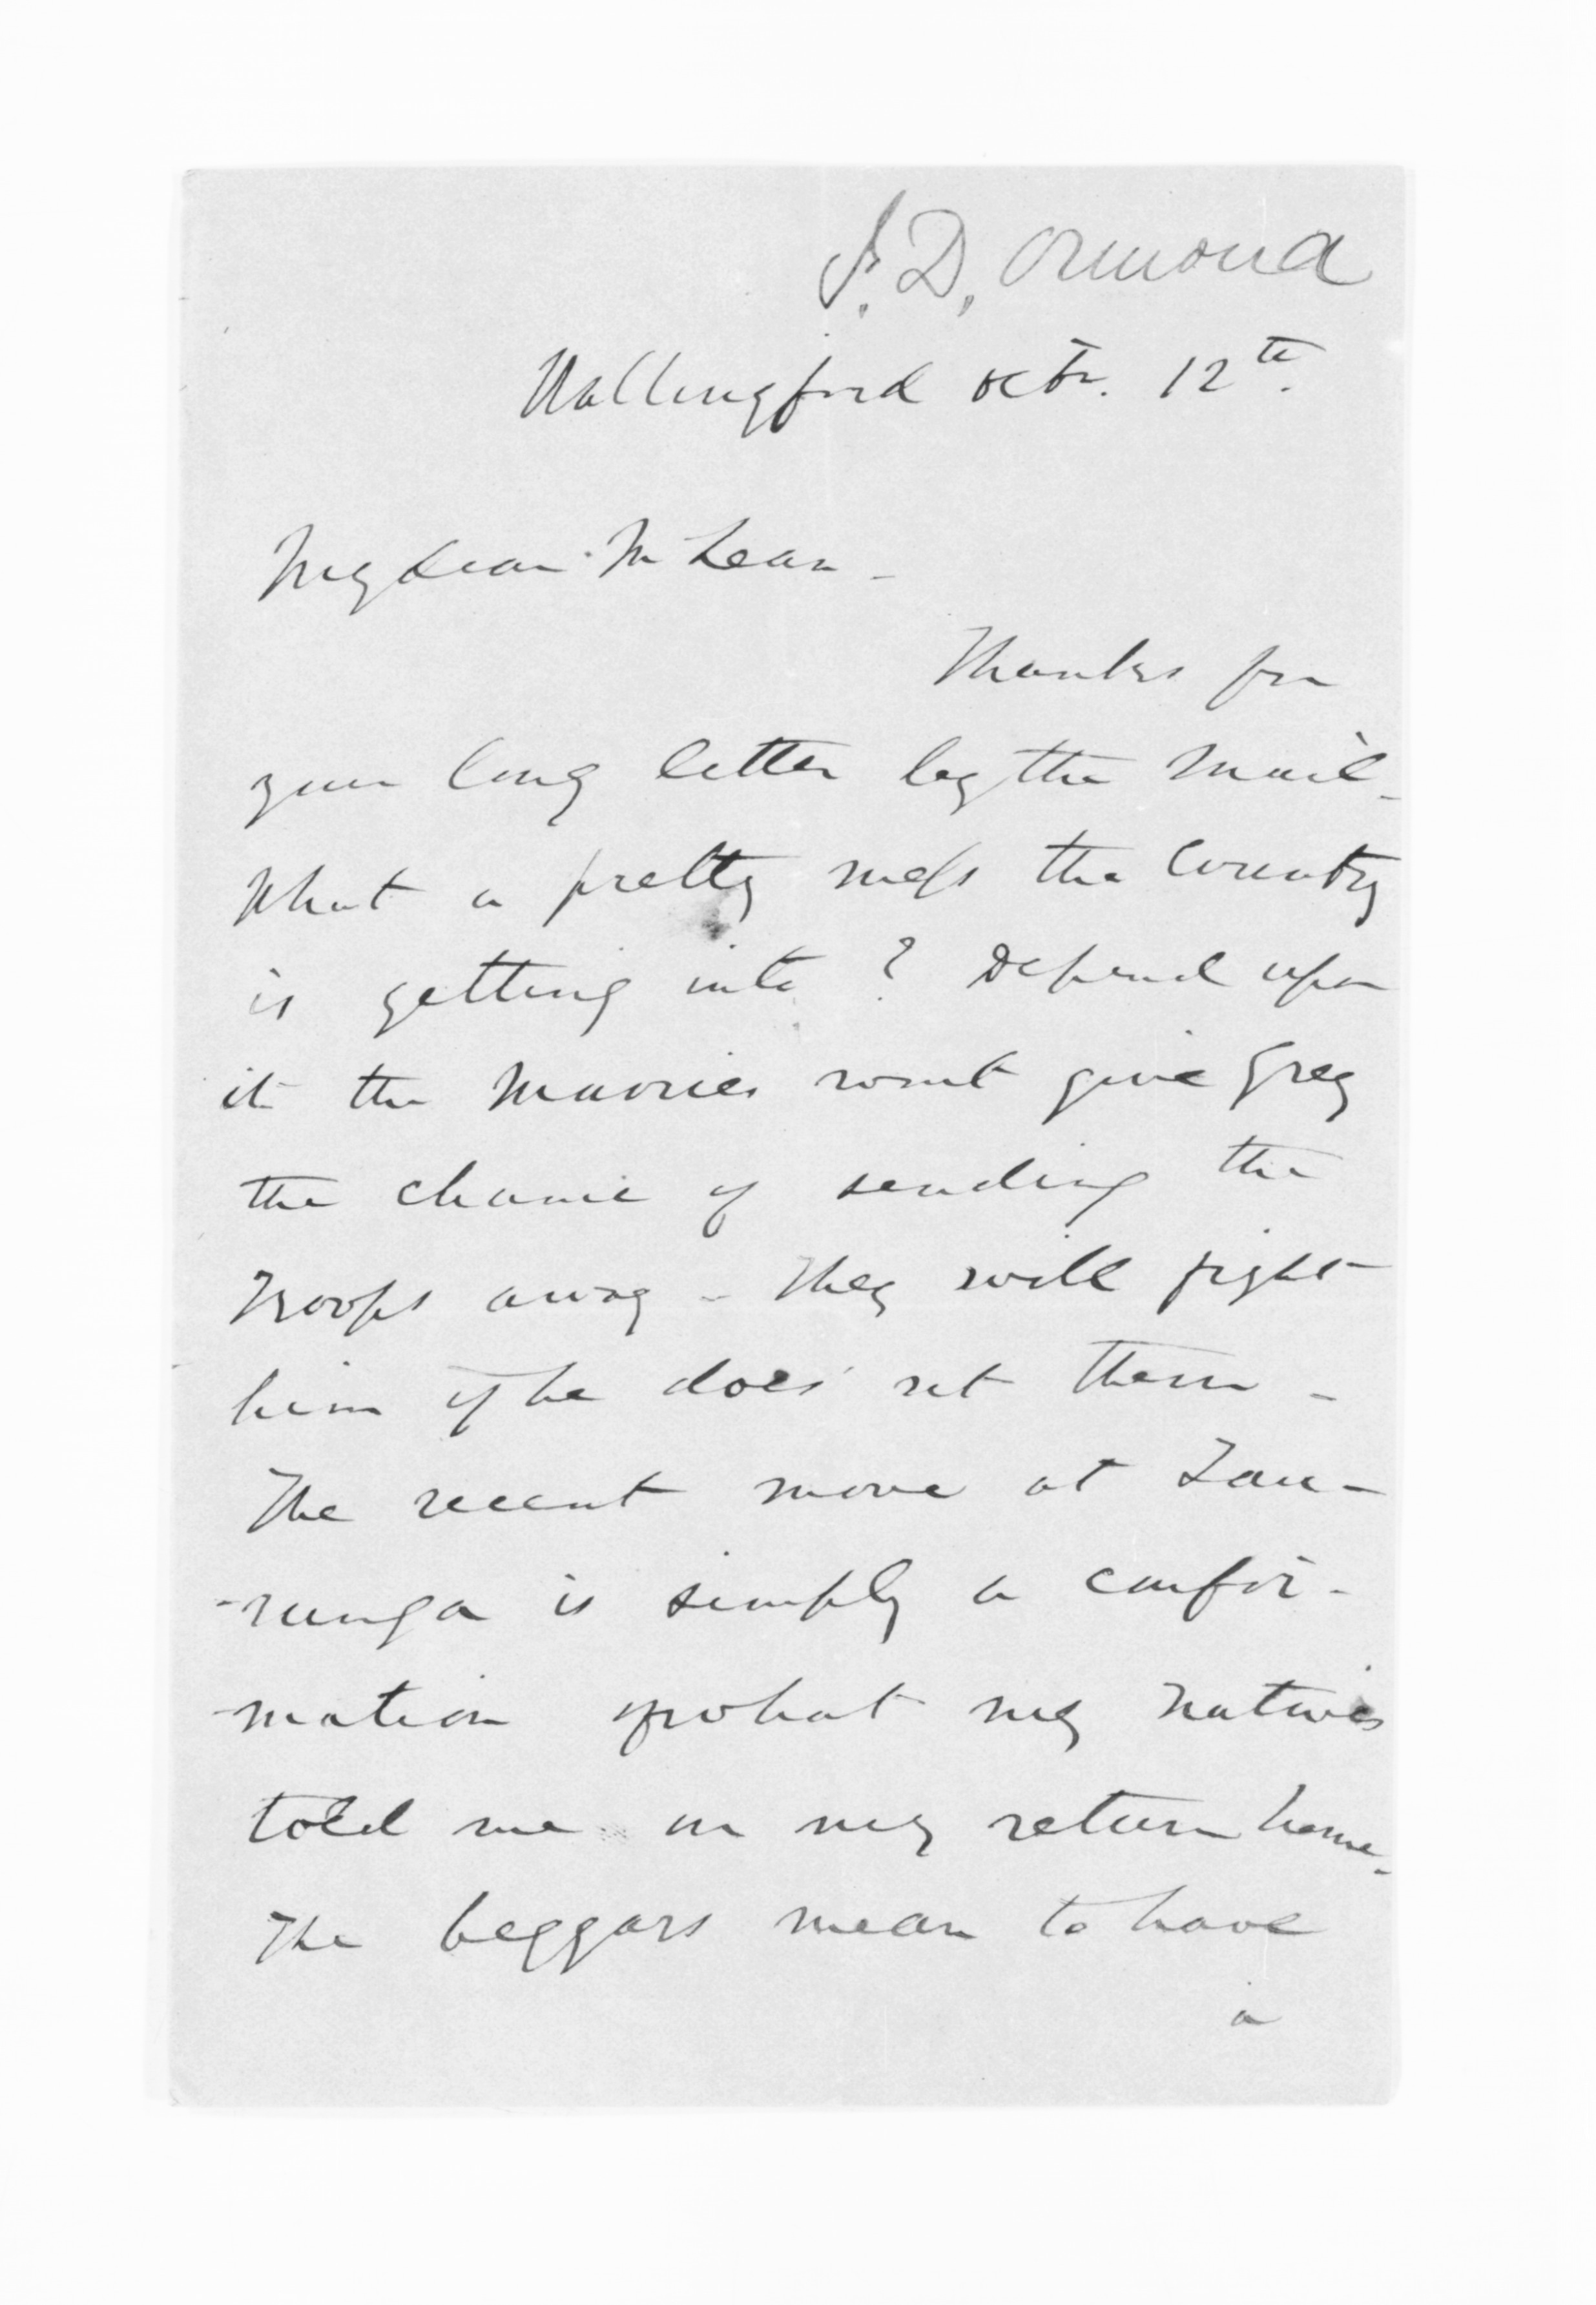 J. D. Ormond
Wallingford Octr. 12th.
My dear McLean -
Thanks for
your long letter by the Mail -
What a pretty mess the Country
is getting into? Depend upon
it the Maories wont give Grey
the chance of sending the
Troops away - They will fight
him if he does set them -
The recent move at Tau-
-runga is simply a confir-
-mation of what my Natives
told me on my return home -
The beggars mean to have
a